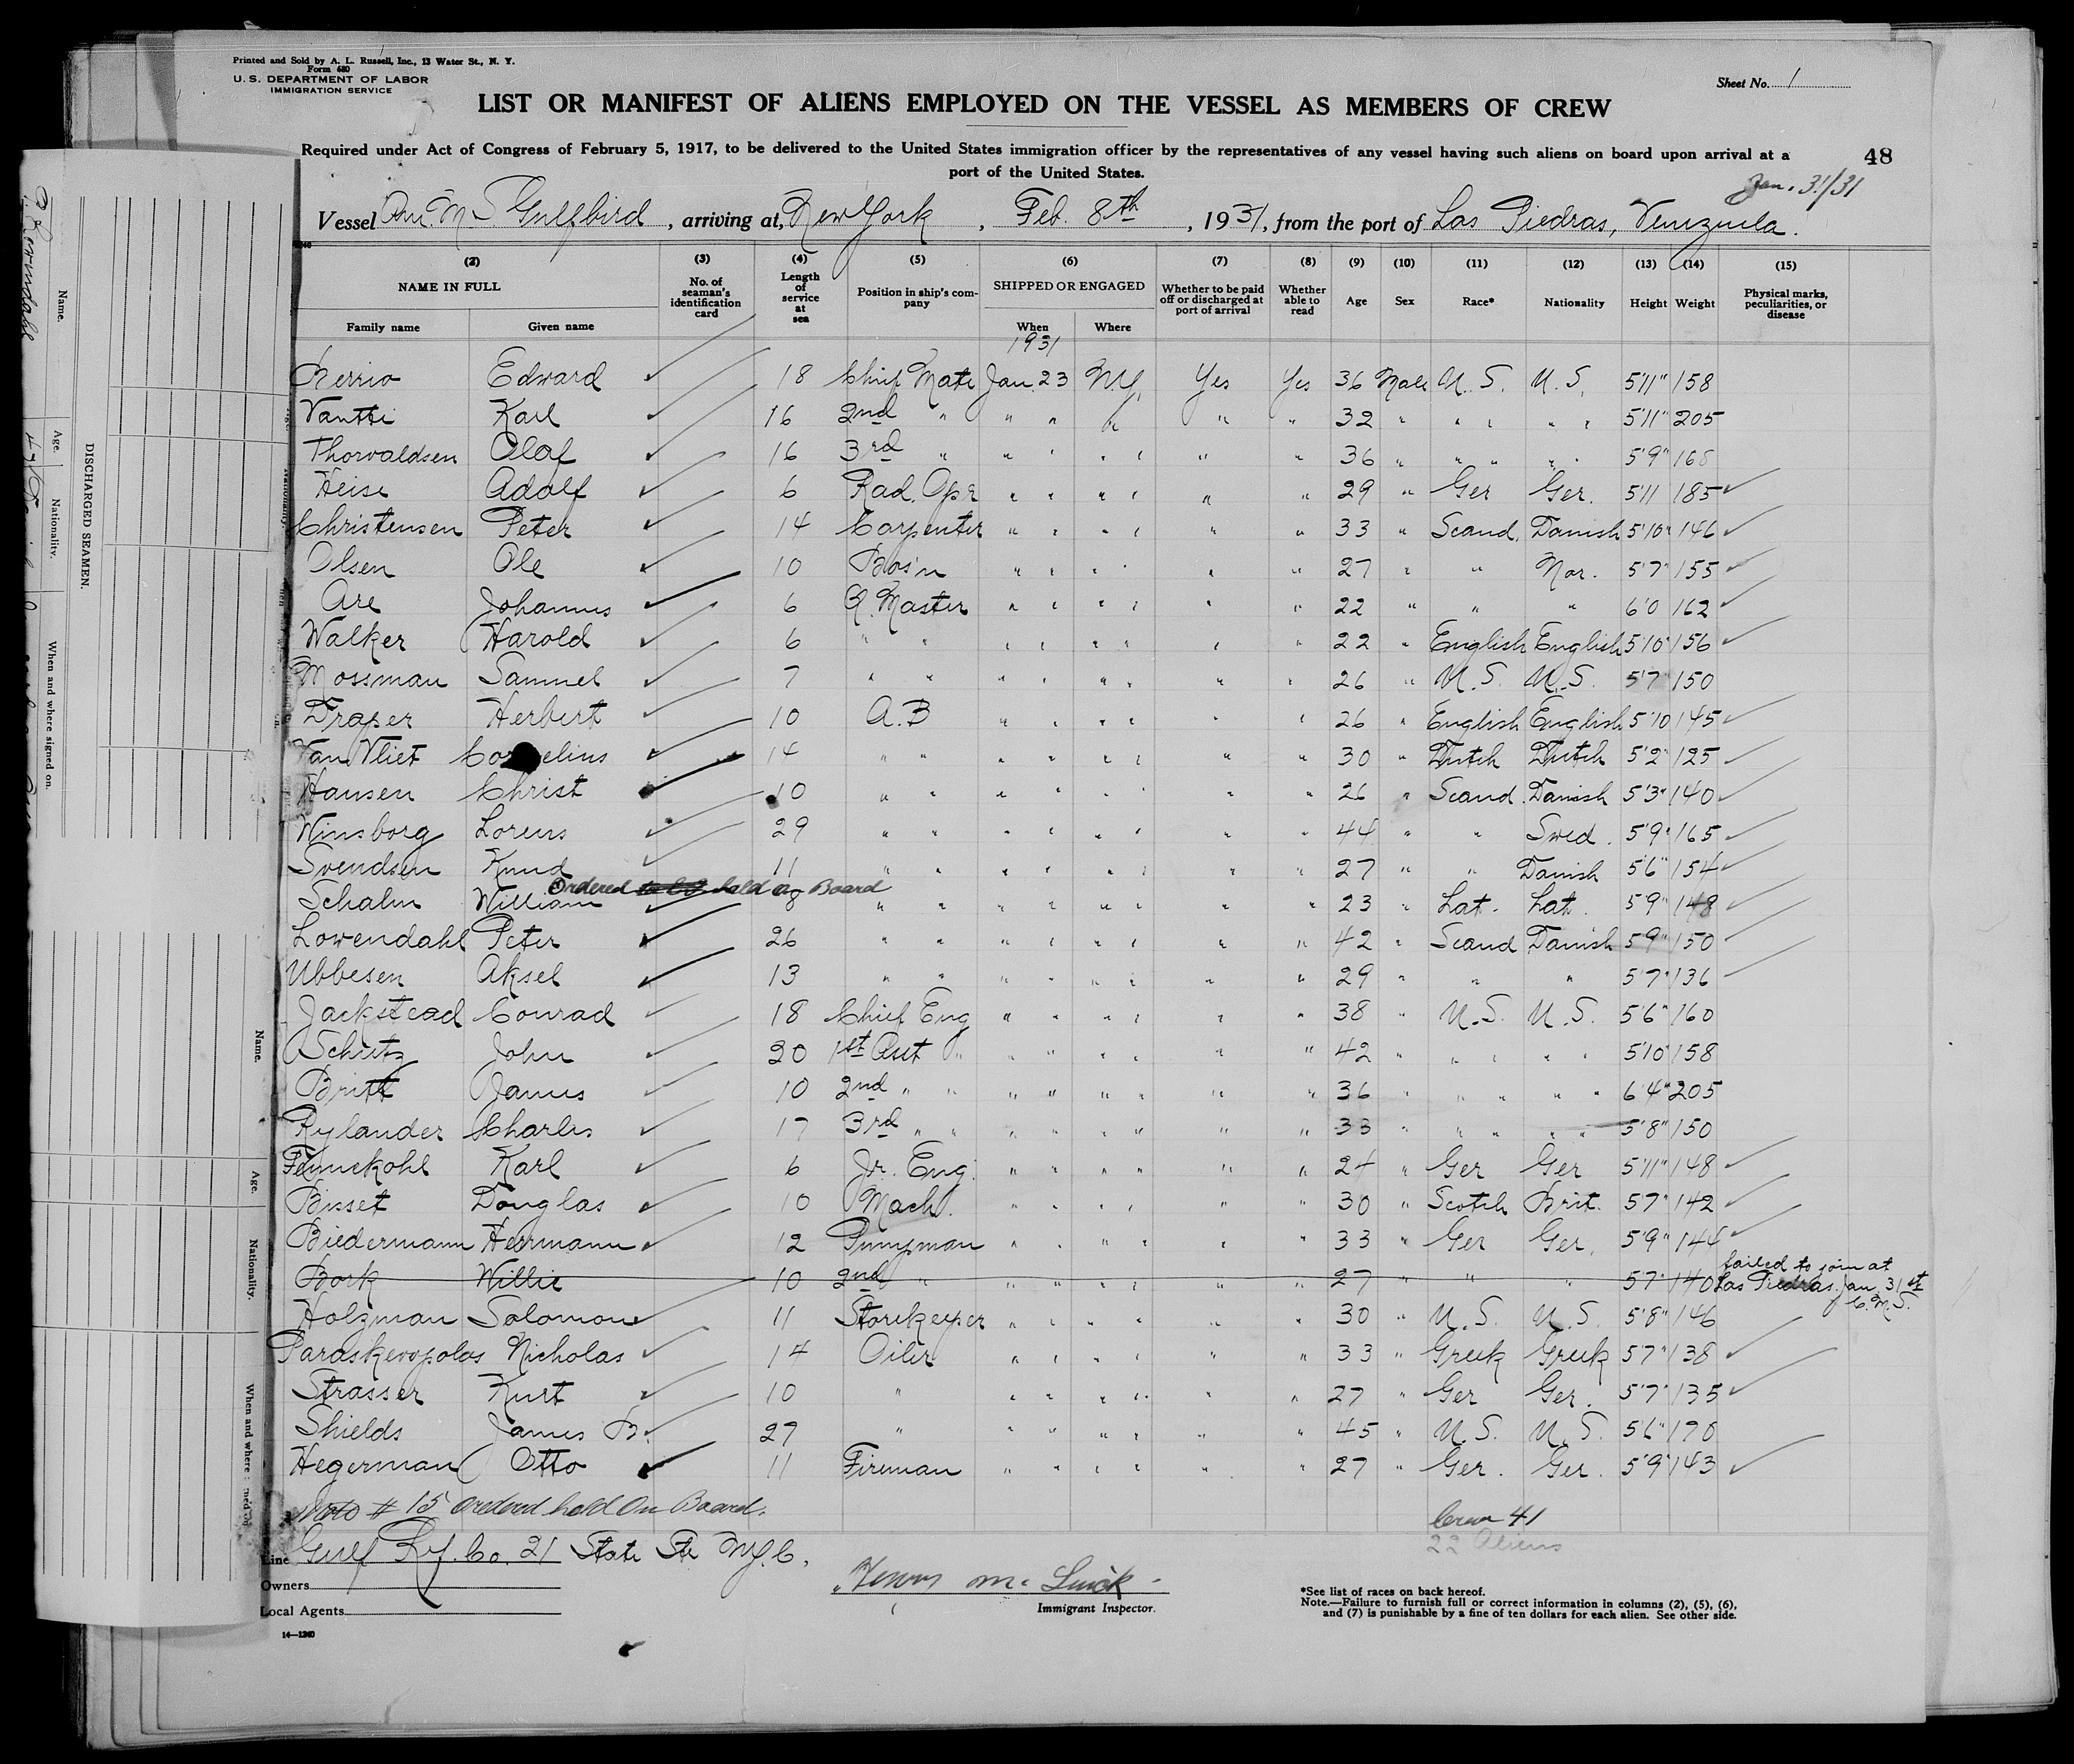 Printed and Sold by A. L. Russell, Inc., 13 Water St., N. Y.
Form 680
U. S. DEPARTMENT OF LABOR
IMMIGRATION SERVICE
Sheet No. 1
LIST OR MANIFEST OF ALIENS EMPLOYED ON THE VESSEL AS MEMBERS OF CREW
Required under Act of Congress of February 5, 1917, to be delivered to the United States immigration officer by the representatives of any vessel having such aliens on board upon arrival at a
port of the United States.
48
Jan. 31/31
Vessel Am. M S Gulfbird, arriving at, New York, Feb. 8th, 1931, from the port of Las Piedras, Venezuela.
(2) (3) (4) (5) (6) (7) (8) (9) (10) (11) (12) (13) (14) (15)
NAME IN FULL No. of seaman's identification card Length of service at sea Position in ship's company SHIPPED OR ENGAGED Whether to be paid off or discharged at port of arrival Whether able to read Age Sex Race* Nationality Height Weight Physical marks, peculiarities, or disease
Family name Given name When Where
1931
Edward 18 Chief Mate Jan. 23 N.Y. Yes Yes 36 Male U.S. U.S. 5'11" 158
Vantti Karl 16 2nd " " " " " 32 " " " " " 5'11" 205
Thorvaldsen Olaf 16 3rd " " " " " " " 36 " " " " " 5'9" 168
Heise Adolf 6 Rad. Opr " " " " " " 29 " Ger Ger. 5'11 185
Christensen Peter 14 Carpenter " " " " " " 33 " Scand. Danish 5'10" 146
Olsen Ole 10 Bos'n " " " " " " 27 " " Nor. 5'7" 155
Are Johannes 6 Q. Master " " " " " " 22 " " " 6'0 162
Walker Harold 6 " " " " " " " " 22 " English English 5'10" 156
Mossman Samuel 7 " " " " " " " " 26 " U.S. U.S. 5'7 150
Draper Herbert 10 A.B " " " " " " 26 " English English 5'10 145
Van Vliet Cornelius 14 " " " " " " " " 30 " Dutch Dutch 5'2" 125
Hansen Christ 10 " " " " " " " " 26 " Scand. Danish 5'3" 140
Winsborg Lorens 29 " " " " " " " " 44 " " Swed. 5'9" 165
Svendsen Knud 11 " " " " " " " " 27 " " Danish 5'6" 154
Ordered to be held on Board
Schalm William 8 " " " " " " " " 23 " Lat. Lat. 5'9" 148
Lowendahl Peter 26 " " " " " " " " 42 " Scand Danish 5'9" 150
Ubbesen Aksel 13 " " " " " " " " 29 " " " 5'7" 136
Jackstead Conrad 18 Chief Eng " " " " " " 38 " U.S. U.S. 5'6" 160
Schutz John 20 1st Asst " " " " " " " 42 " " " " " 5'10" 158
Britt James 10 2nd " " " " " " " " 36 " " " " " 6'4" 205
Rylander Charles 17 3rd " " " " " " " " 33 " " " " " 5'8" 150
Karl 6 Jr. Eng. " " " " " " 24 " Ger Ger 5'11" 148
Bisset Douglas 10 Mach. " " " " " " 30 " Scotch Brit. 5'7" 142
Biedermann Herrmann 12 Pumpman " " " " " " 33 " Ger Ger. 5'9" 144
Bork Willie 10 2nd " " " " " " " 27 " " " 5'7" 140 failed to join at
Las Piedras. Jan 31st
C.M.S.
Holzman Solomon 11 Storekeeper " " " " " " 30 " U.S. U.S. 5'8" 146
Paraskevopolos Nicholas 14 Oiler " " " " " " 33 " Greek Greek 5'7" 138
Strasser Kurt 10 " " " " " " " 27 " Ger Ger. 5'7" 135
Shields James B. 27 " " " " " " " 45 " U.S. U.S. 5'6" 170
Hegerman Otto 11 Fireman " " " " " " 27 " Ger. Ger. 5'9" 143
Note # 15 ordered held On Board.
Crew 41
22 Aliens
Line Gulf Rf. Co. 21 State St N.Y.C.
Owners
Local Agents
Immigrant Inspector.
*See list of races on back hereof.
Note.—Failure to furnish full or correct information in columns (2), (5), (6),
and (7) is punishable by a fine of ten dollars for each alien. See other side.
14—1240
DISCHARGED SEAMEN.
Name. Age. Nationality. When and where signed on.
Name. Age. Nationality. When and where